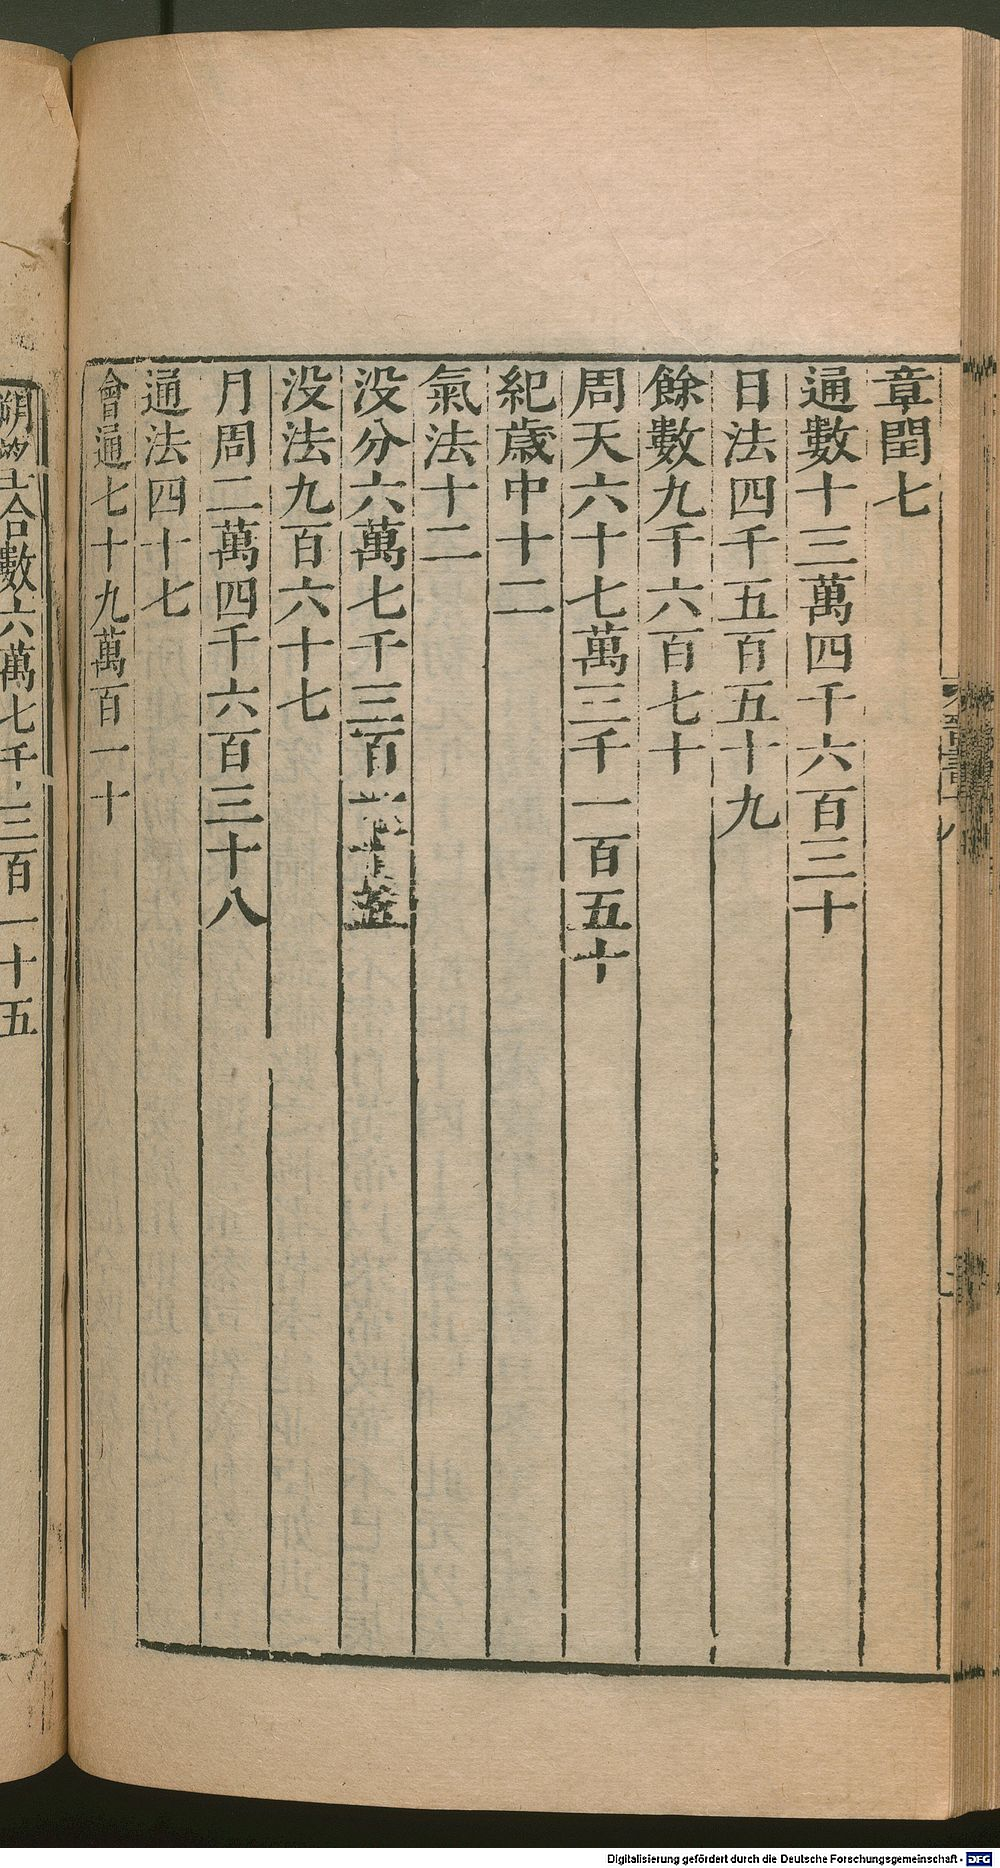 章閏七
通數十三萬四千六百三十
日法四千五百五十九
餘數九千六百七十
周天六十七萬三千一百五十
紀歲中十二
氣法十二
没分六萬七千三百一十五
没法九百六十七
月周二萬四千六百三十八
通法四十七
會通七十九萬百一十
朔望合數六萬七千三百一十五
晉書十八
Digitalisierung gefördert durch die Deutsche Forschungsgemeinschaft - DFG